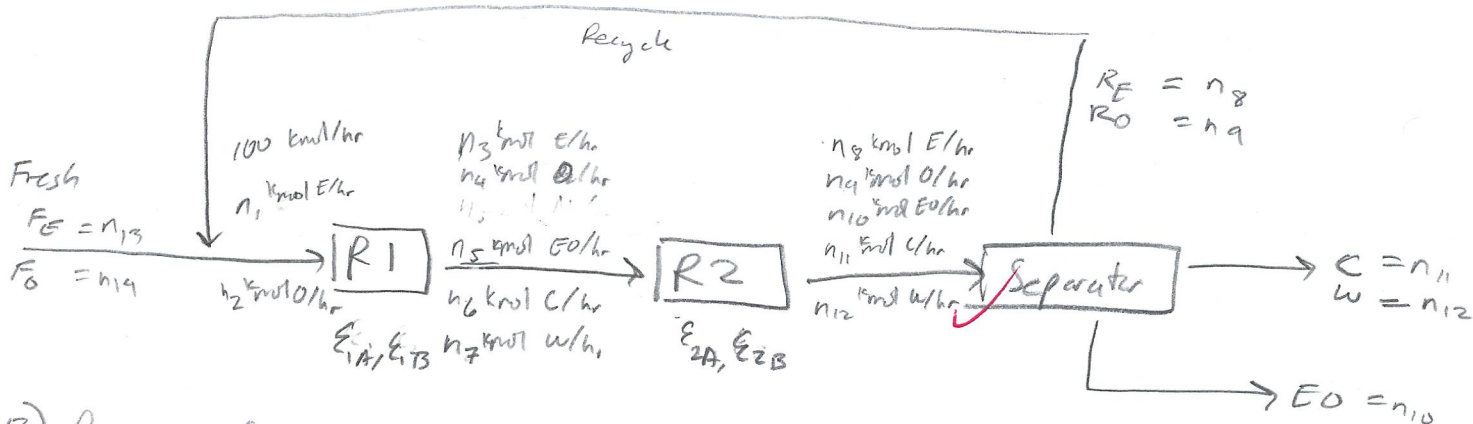 Recycle
R_E = n_8
R_O = n_9
Fresh
F_E = n_13
F_O = n_14
100 kmol/hr
n_1 kmol E/hr
n_2 kmol O/hr
R1
ξ_1A, ξ_1B
n_3 kmol E/hr
n_4 kmol O/hr
n_5 kmol EO/hr
n_6 kmol C/hr
n_7 kmol W/hr
R2
ξ_2A, ξ_2B
n_8 kmol E/hr
n_9 kmol O/hr
n_10 kmol EO/hr
n_11 kmol C/hr
n_12 kmol W/hr
Separator
C = n_11
W = n_12
EO = n_10